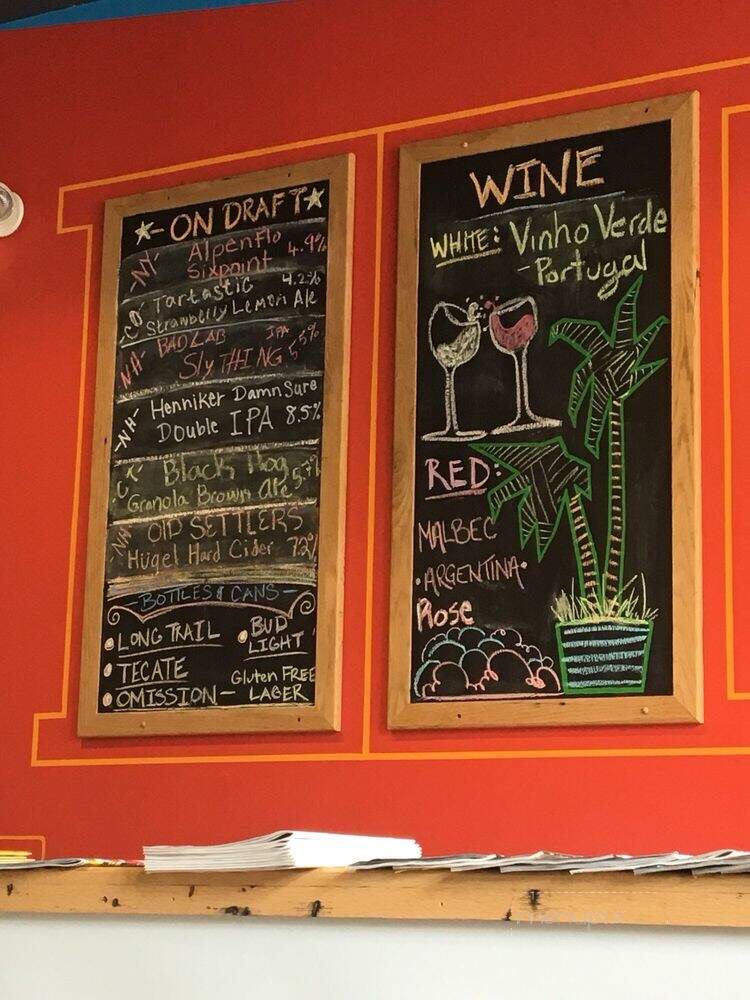 ON DRAFT
NY- Alpenflo 4.9%
Sixpoint
CO- Tartastic 4.2%
Strawberry Lemon Ale
NH- BAD LAB IPA
SlyTHING 5.5%
NH- Henniker DamnSure
Double IPA 8.5%
CT- Black Hog
Granola Brown Ale 5.7%
NH- OlD SETTLERS
Hügel Hard Cider 7.2%
-BOTTLES & CANS-
LONG TRAIL
BUD
LIGHT
TECATE
OMISSION - Gluten FREE
LAGER
WINE
WHITE: Vinho Verde
-Portugal
RED:
MALBEC
·ARGENTINA·
Rose